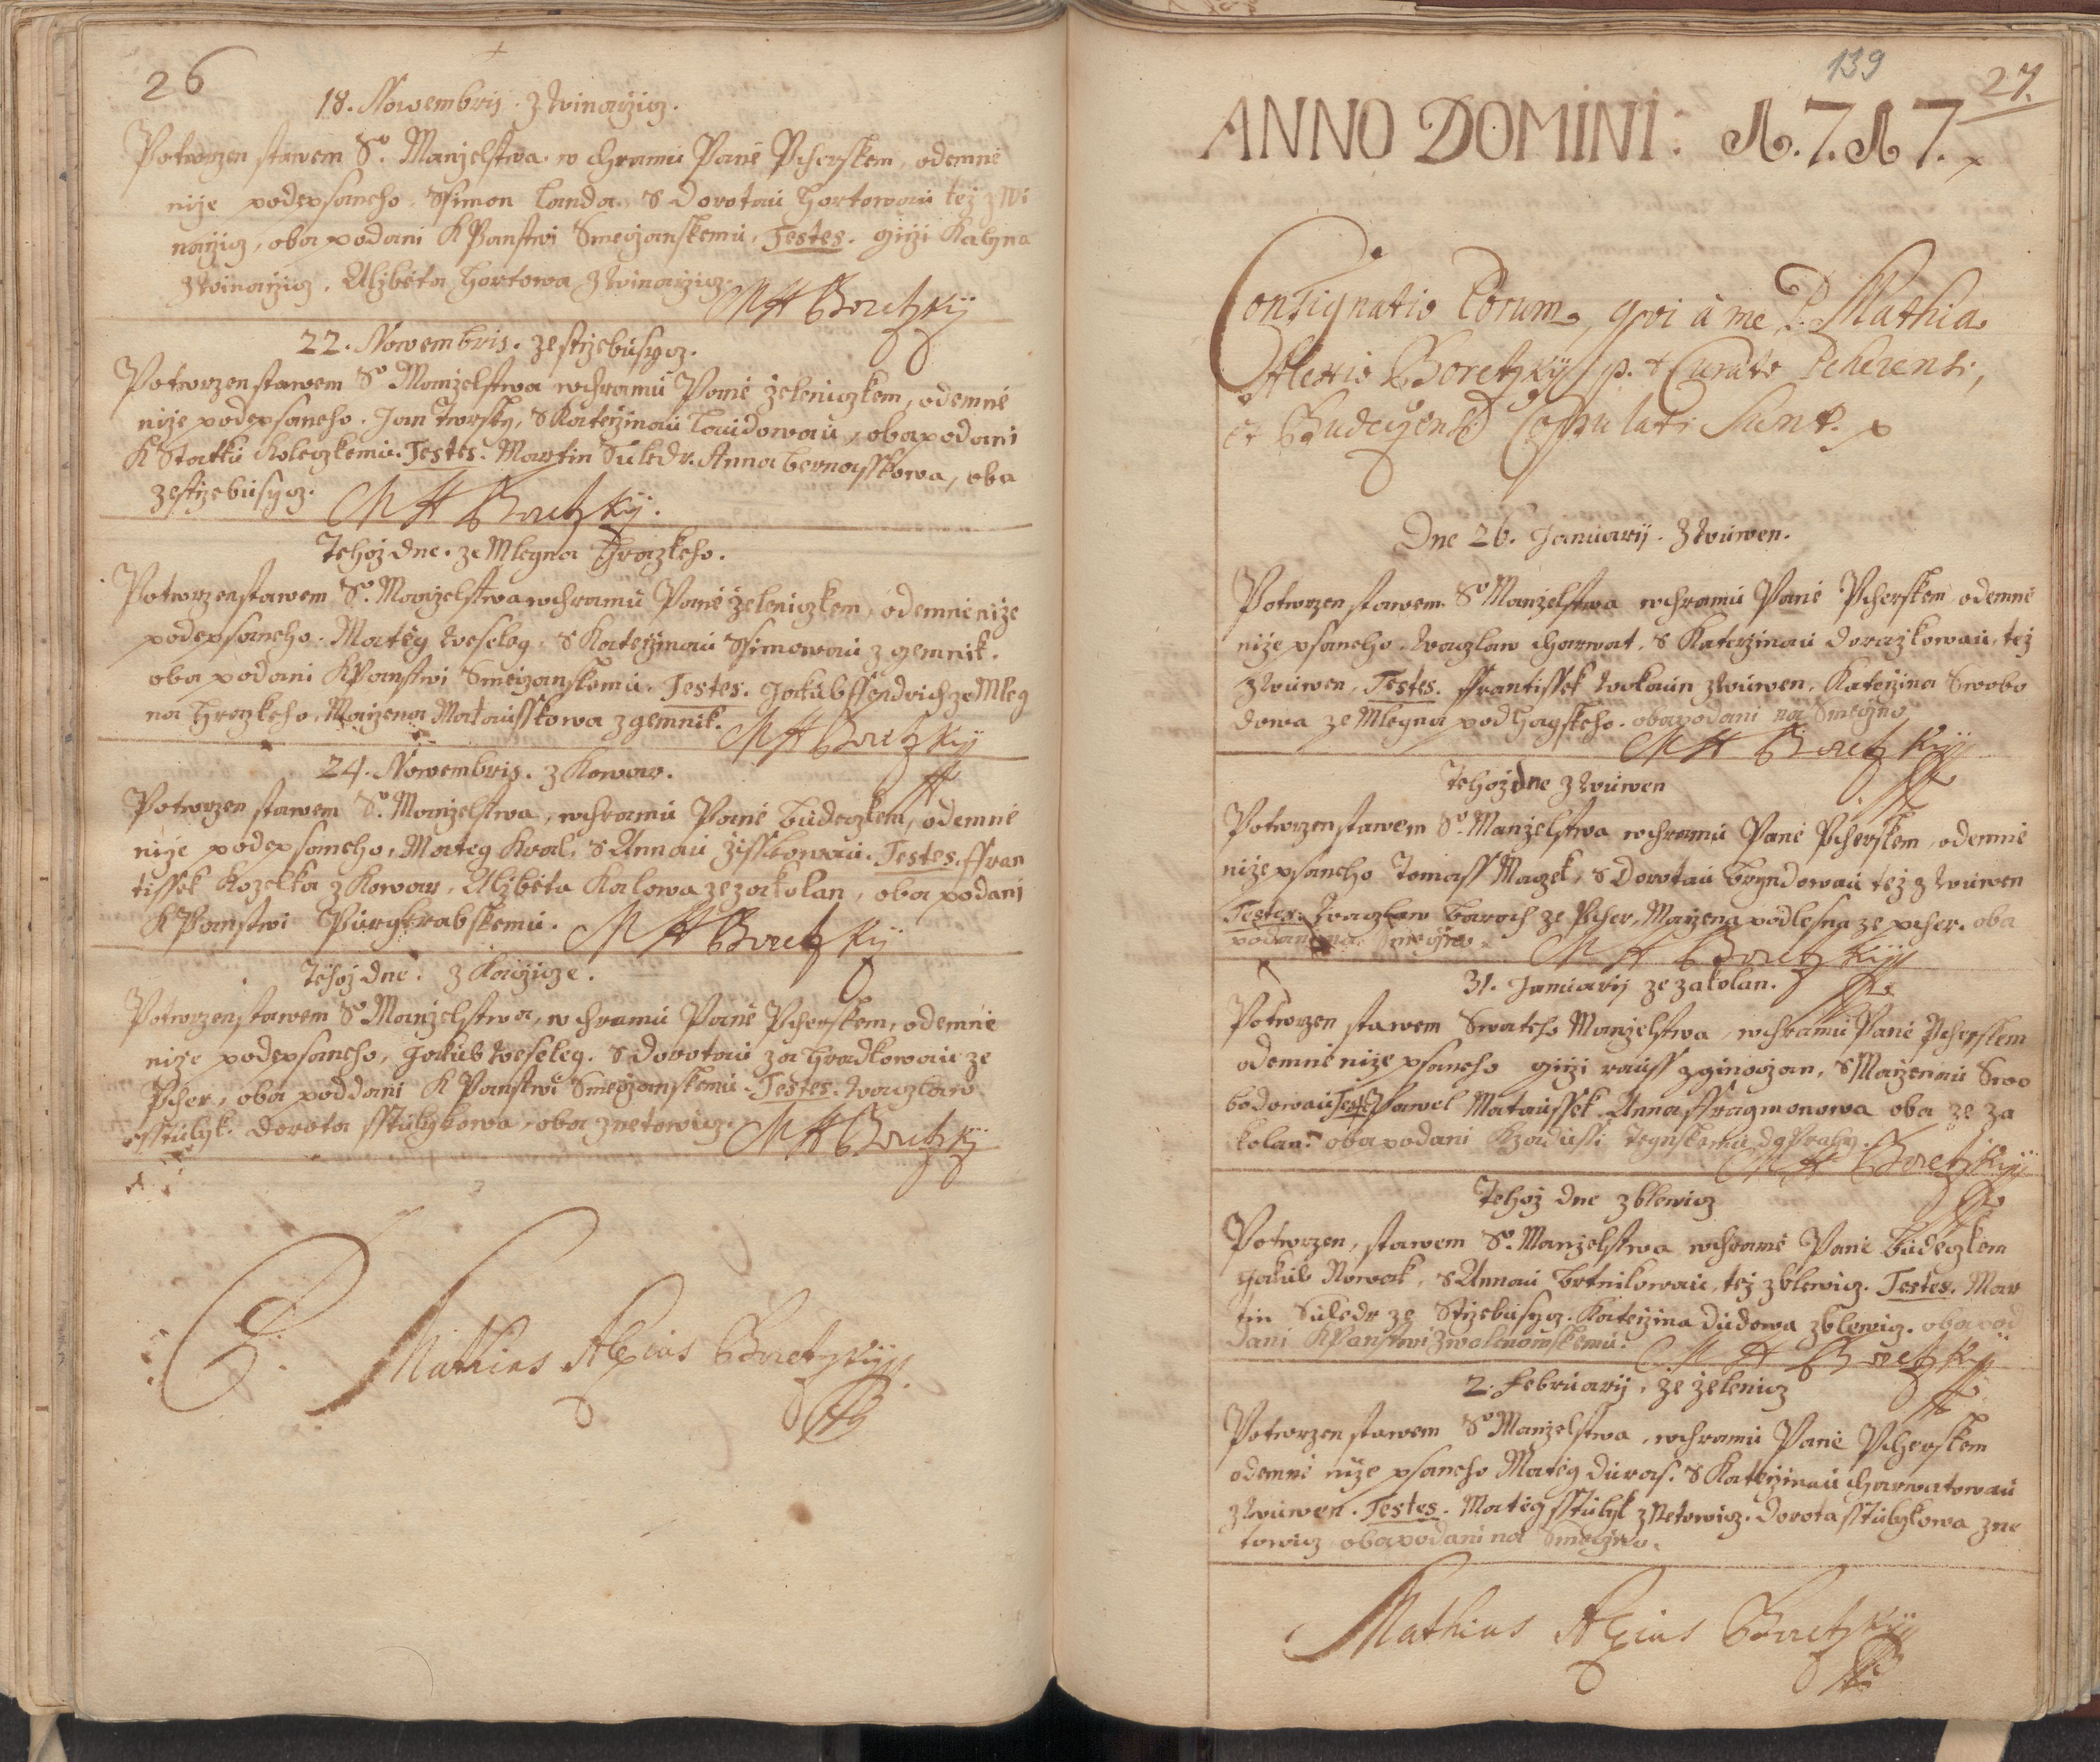 26
18. Novembris. z Winarzicz.
Potwrzen stawem Sº. Manželstwa w chramu Paně Pcherskem, odemně
niže podepsaneho. Ssimon Landa. S Dorotau Hortowau též z Wi
narzicz, oba podani K Panstwi Smeczanskemu, Testes. Girži Kalyna
z Winarzicz. Alžběta Hortowa z Winarzicz. MA Boretzky
22. Novembris. ze Stržebusycz.
Potwrzen stawem Sº Manželstwa w chramu Paně Želeniczkem, odemně
niže podepsaneho. Jan Tworsky, S Kateržinau Lauidowau, oba podani
K Statku Koleczkemu. Testes. Martin Suledr. Anna Bernasskowa, oba
ze Stržebusycz. MA Boretzky.
Tehož dne. ze Mlegna Hrazkeho.
Potwrzen stawem Sº. Manželstwa w chramu Paně Želeniczkem, odemně niže
podepsaneho. Matěg Weseleg, S Kateržinau Ssimowau z Gemnik.
oba podani K Panstwi Smeczanskemu. Testes. Jakub Ssendrich ze Mleg
na Hrazkeho, Maržena Matausskowa z Gemnik. MA Boretzky
24. Novembris. z Kowar.
Potwrzen stawem Sº. Manželstwa, w chramu Paně Budeczkem, odemně
niže podepsaneho, Mateg Kral, S Annau Žisskowau. Testes. Ffran
tissek Kozelka z Kowar, Alžběta Kalowa ze Zakolan, oba podani
K Panstwi Purgkrabskemu. MA Boretzky
Tehož dne. z Karžicze.
Potwrzen stawem Sº Manželstwa, w chramu Paně Pcherskem, odemně
niže podepsaneho, Jakub Weseleg. S Dorotau Zahradkowau ze
Pcher, oba poddani K Panstwi Smeczanskemu. Testes. Waczlaw
Sstulyk. Dorota Sstulykowa, oba z Netowicz. MA Boretzky
P. Mathias Alexius Boretzky
139
27.
ANNO DOMINI: 1.7.17.
Consignatio Eorum, qvi à me P. Mathia
Alexio Boretzky p. t. Curato Pcherens:,
et Budeczens: Copulati Sunt.
Dne 26. Januarij. z Wuwen.
Potwrzen stawem Sº Manželstwa w chramu Paně Pcherskem odemně
niže psaneho. Waczlaw Charwat, S Katerzinau Dorazkowau, též
z Wuwen, Testes. Ffrantissek Wokaun z Wuwen, Kateržina Swobo
dowa ze Mlegna pod Hagskeho. oba podani na Smeczno
MA Boretzky
Tehož dne z Wuwen
Potwrzen stawem Sº. Manželstwa w chramu Paně Pcherskem, odemně
niže psaneho Tomass Maczek, S Dorotau Bryndowau též z Wuwen
Testes. Waczlaw Baroch ze Pcher, Maržena Podlesna ze Pcher. oba
podani na Smeczno. MA Boretzky
31. Januarij ze Zakolan.
Potwrzen stawem Swateho Manželstwa, w chramu Paně Pcherskem
odemně niže psaneho Girži Rauss z Ginoczan, S Marženau Swo
bodowau Testes Pawel Mataussek. Anna Ffragmonowa oba ze Za
kolan. oba podani K Zadussi Teynskemu do Prahy.
MA Boretzky
Tehož dne z Blewicz
Potwrzen, stawem Sº. Manželstwa w chramě Paně Budeczkem
Jakub Nowak, S Annau Brtnikowau, též z Blewicz. Testes. Mar
tin Suledr ze Stržebusycz. Kateržina Dudowa z Blewicz. oba pod
dani K Panstwi Zwolenowskemu. MA Boretzky
2. Februarij, ze Želenicz
Potwrzen stawem Sº Manželstwa, w chramu Paně Pcherskem
odemně niže psaneho Matěg Duras. S Kateržinau Charwatowau
z Wuwen. Testes. Matěg Sstulyk z Netowicz. Dorota Sstulykowa z Ne
towicz oba podani na Smeczno.
Mathias Alexius Boretzky